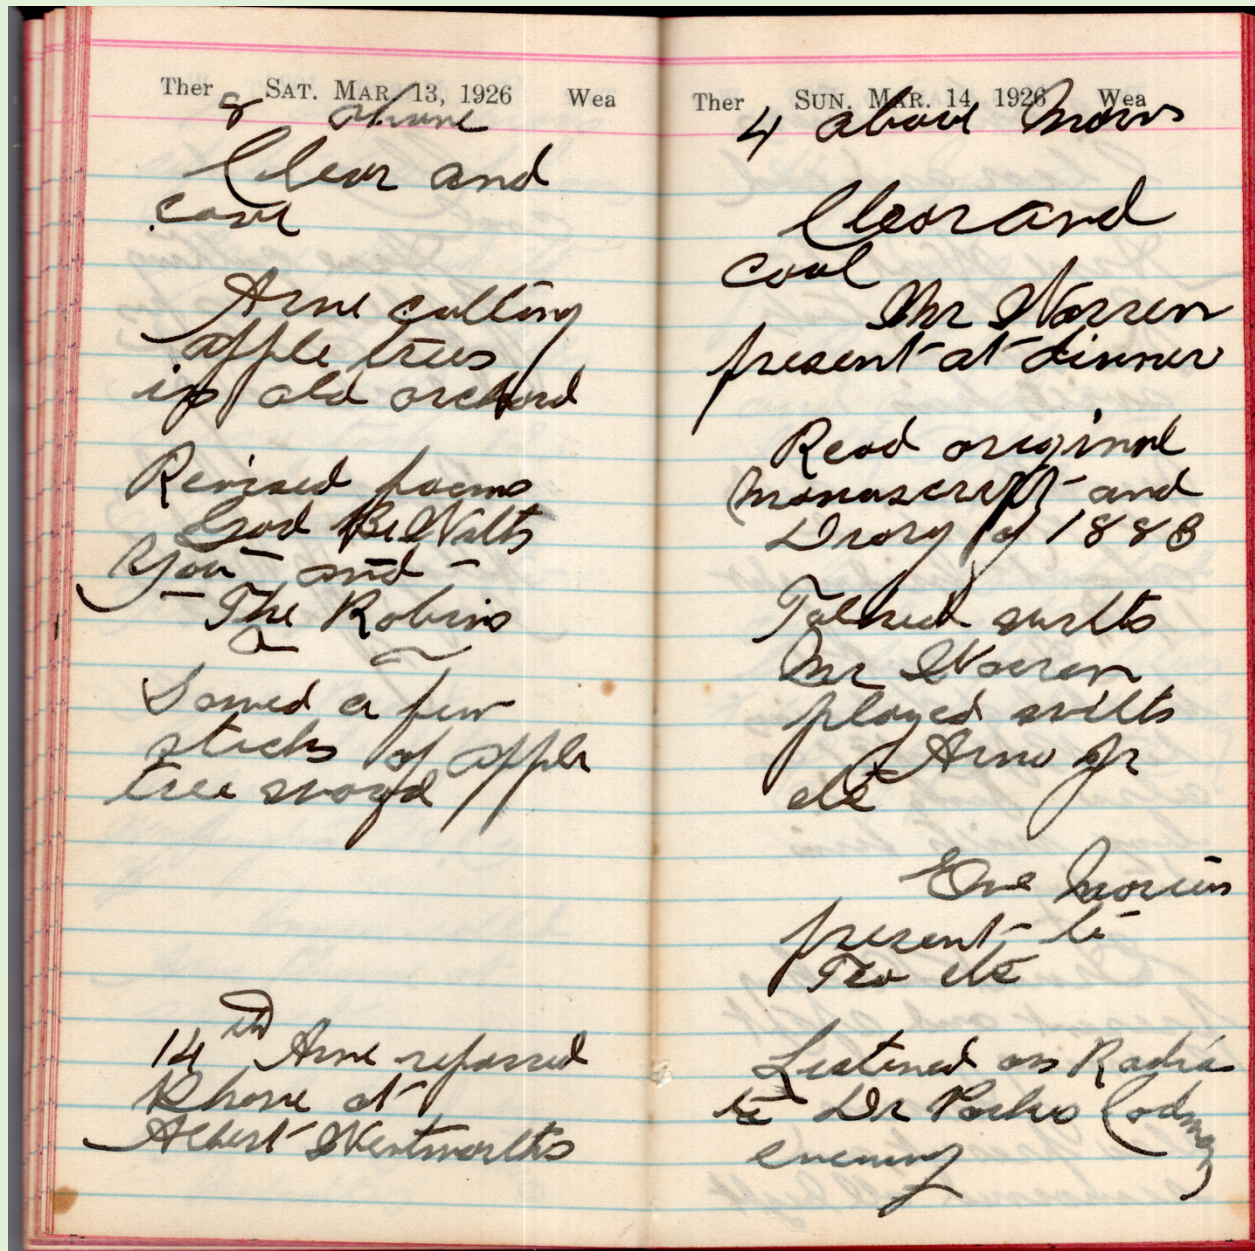 Ther SAT. MAR. 13, 1926 Wea
8 above
Clear and
cool
Arne cutting
apple trees
in old orchard
Revised poems
God Be With
You and
The Robins
Sawed a few
sticks of apple
tree wood
14th Arne repaired
Phone at
Albert Wentworths
Ther SUN. MAR. 14, 1926 Wea
4 above Morn
Clear and
cool
Mr Warren
present at dinner
Read original
manuscript and
Diary of 1888
Talked with
Mr Warren
played with
Arno Jr
etc
Eve
present to
Tea etc
Listened on Radio
to Dr Parkes Cadman
evening